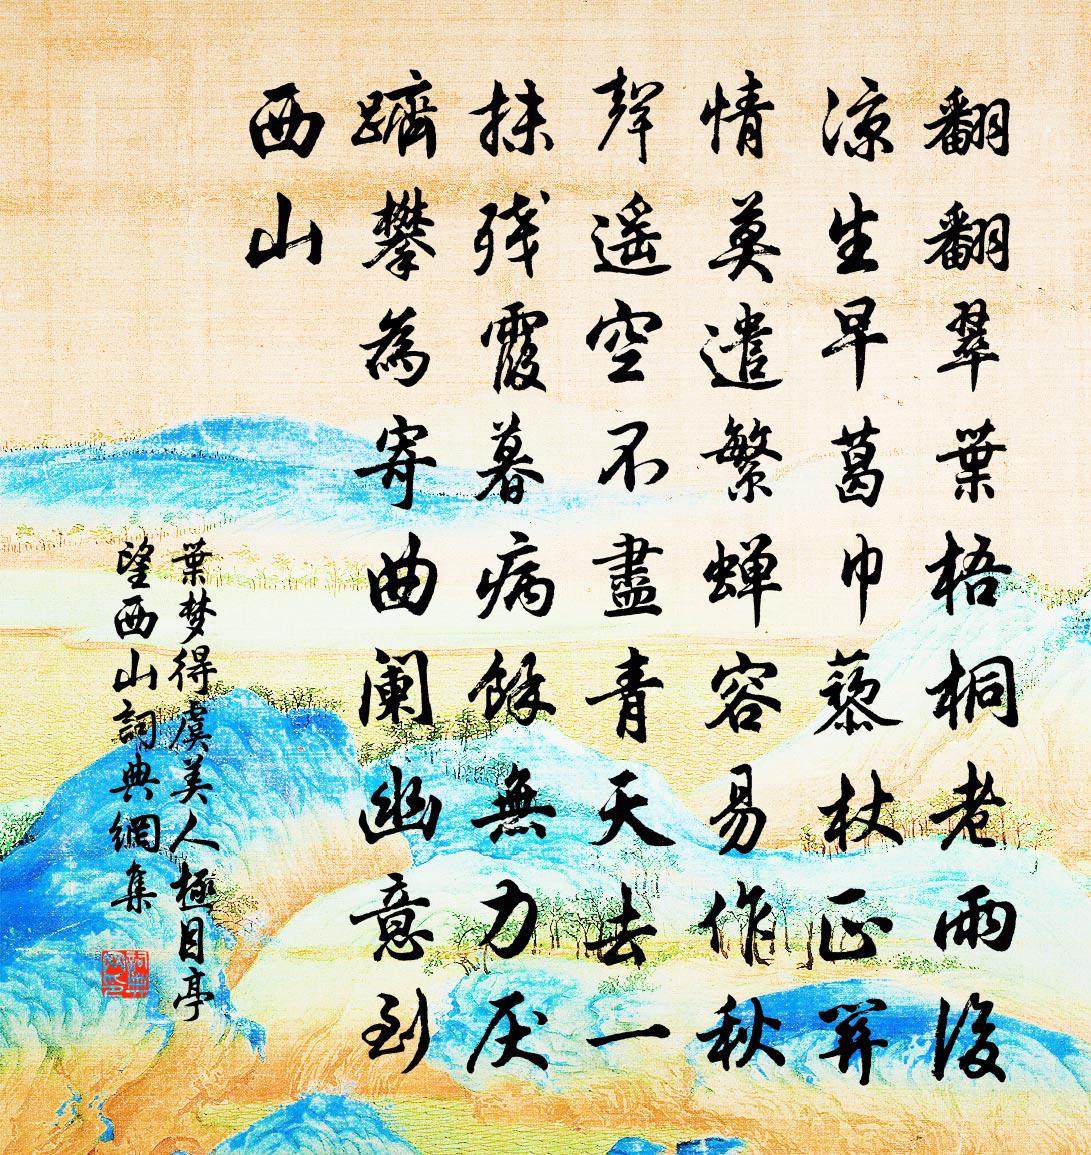 翻翻翠葉梧桐老雨後
涼生早葛巾藜杖正關
情莫遣繁蝉容易作秋
聲遥空不盡青天去一
抹残霞暮病餘無力厌
躋攀為寄曲阑幽意到
西山
葉梦得虞美人極目亭
望西山詞典網集